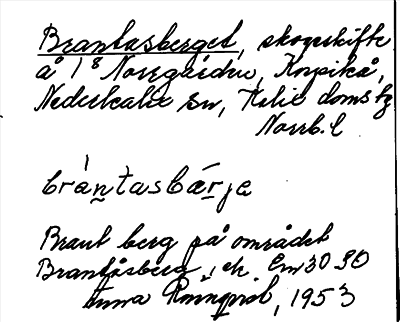 Brantasberget, skogsskifte
å 1⁸ Norrgården, Korpikå,
Nederkalix sn, Kalix doms tg
Norrb. l
brántasbárje
Brant berg på området
Brantåsberg, ek.
Anna Rönnqvist, 1953